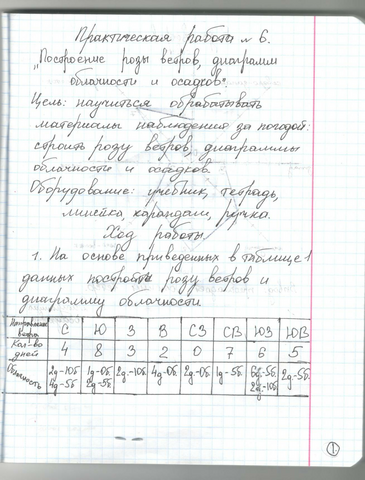 Практическая работа № 6.
„Построение розы ветров, диаграмм
облачности и осадков".
Цель: научиться обрабатывать
материалы наблюдения за погодой:
строить розу ветров, диаграммы
облачности и осадков.
Оборудование: учебник, тетрадь,
линейка, карандаш, ручка.
Ход работы.
1. На основе приведенных в таблице 1
данных построить розу ветров и
диаграмму облачности
Направление ветра С Ю З В СЗ СВ ЮЗ ЮВ
Кол-во дней 4 8 3 2 0 7 6 5
Облачность 2д-10б. 4д-5б. 1д-0б. 2д-5б. 2д.-10б. 4д-0б. 2д-0б. 1д-5б. 6д-5б. 2д-10б. 2д-5б.
1